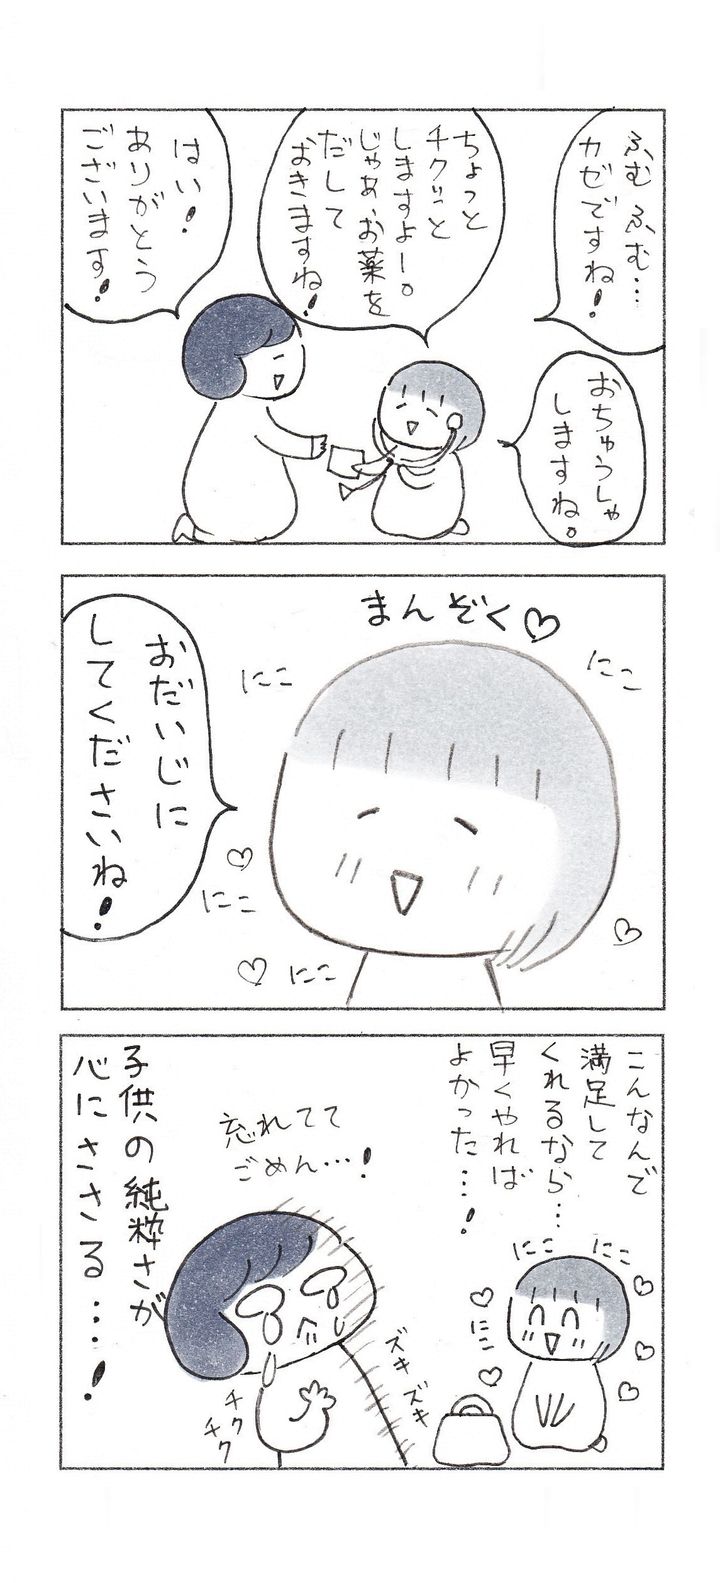 ふむふむ…
カゼですね!
おちゅうしゃ
しますね。
ちょっと
チクッと
しますよー。
じゃあ、お薬を
だして
おきますね!
はい!
ありがとう
ございます!
まんぞく♡
にこ
にこ
おだいじに
してくださいね!
にこ
にこ
こんなんで
満足して
くれるなら…
早くやれば
よかった…!
にこ
にこ
にこ
忘れてて
ごめん…!
ズキズキ
チク
チク
子供の純粋さが
心にささる…!